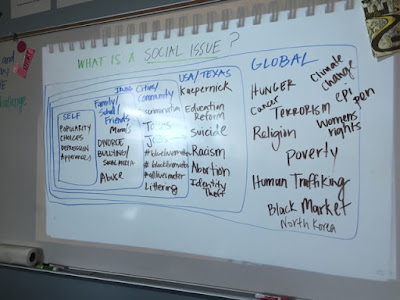 WHAT IS A SOCIAL ISSUE?
SELF
POPULARITY
CHOICES
DEPRESSION
Appearances
Family/
School/
Friends
Moms
DIVORCE
BULLYING/
SOCIAL MEDIA
Abuse
Cities/
Community
Jobs
#bluelivesmatter
#blacklivesmatter
#alllivesmatter
Littering
USA/TEXAS
Kaepernick
Education
Reform
Suicide
Racism
Abortion
Identity
Theft
GLOBAL
HUNGER
Climate
change
Cancer
TERRORISM
Religion
Womens
rights
Poverty
Human Traffiking
Black Market
North Korea